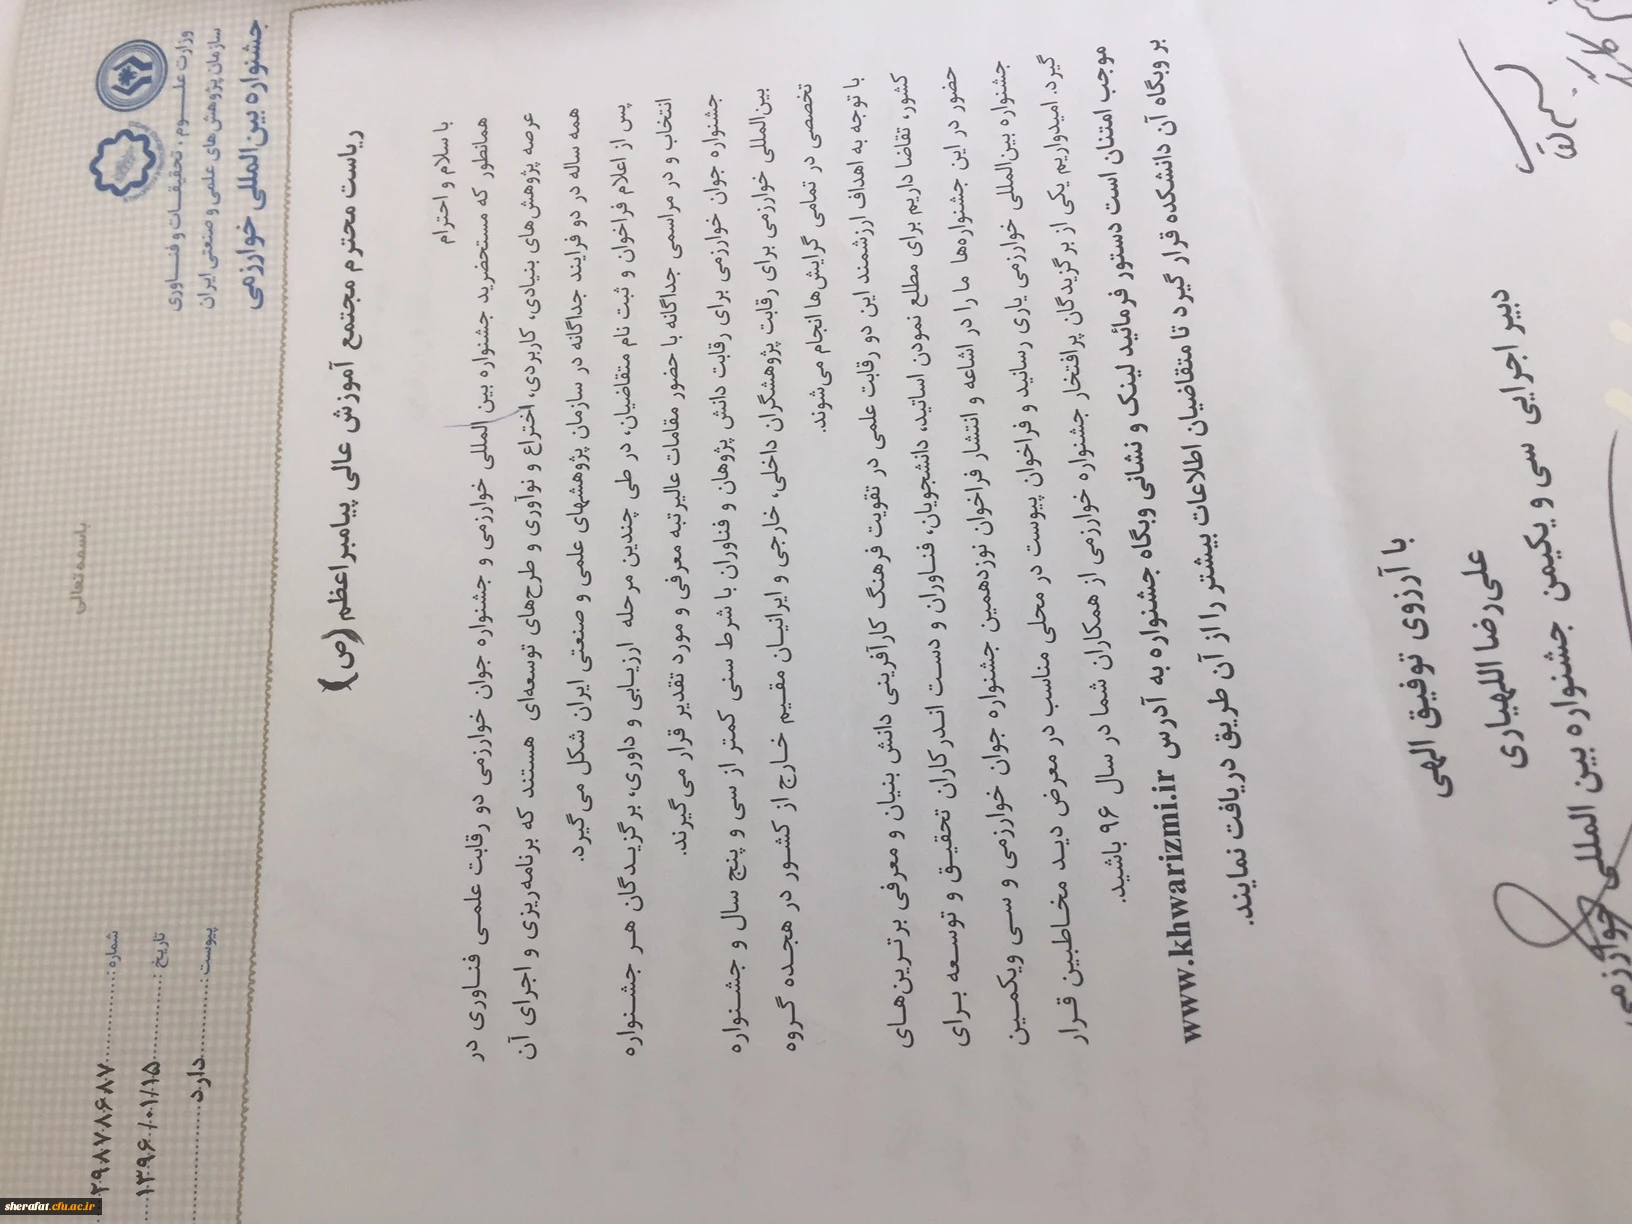 باسمه تعالی
وزارت علـــوم، تحقیقـــات و فنـــاوری
سازمان پژوهش‌های علمی و صنعتی ایران
جشنواره بین‌المللی خوارزمی
شماره : ۲۹۸۷۷۸۶۸۷
تاریخ : ۱۳۹۶/۰۱/۱۵
پیوست : دارد
ریاست محترم مجتمع آموزش عالی پیامبراعظم (ص)
با سلام و احترام
همانطور که مستحضرید جشنواره بین المللی خوارزمی و جشنواره جوان خوارزمی دو رقابت علمـی فنـاوری در
عرصه پژوهش‌های بنیادی، کاربردی، اختراع و نوآوری و طرح‌های توسعه‌ای هستند که برنامه‌ریزی و اجرای آن
همه ساله در دو فرایند جداگانه در سازمان پژوهشهای علمی و صنعتی ایران شکل می‌گیرد.
پس از اعلام فراخوان و ثبت نام متقاضیان، در طی چندین مرحله ارزیـابی و داوری، برگزیـدگان هـر جشـنواره
انتخاب و در مراسمی جداگانه با حضور مقامات عالیرتبه معرفی و مورد تقدیر قرار می‌گیرند.
جشنواره جوان خوارزمی برای رقابت دانش پژوهان و فناوران با شرط سنی کمتر از سی و پنج سال و جشـنواره
بین‌المللی خوارزمی برای رقابت پژوهشگران داخلی، خارجی و ایرانیـان مقـیم خـارج از کشـور در هجـده گـروه
تخصصی در تمامی گرایش‌ها انجام می‌شوند.
با توجه به اهداف ارزشمند این دو رقابت علمی در تقویت فرهنگ کارآفرینی دانش بنیان و معرفی برترین‌هـای
کشور، تقاضا داریم برای مطلع نمودن اساتید، دانشجویان، فنـاوران و دسـت انـدرکاران تحقیـق و توسـعه بـرای
حضور در این جشنواره‌ها ما را در اشاعه و انتشار فراخوان نوزدهمین جشنواره جوان خوارزمی و سـی ویکمـین
جشنواره بین‌المللی خوارزمی یاری رسانید و فراخوان پیوست در محلی مناسب در معرض دیـد مخـاطبین قـرار
گیرد. امیدواریم یکی از برگزیدگان پرافتخار جشنواره خوارزمی از همکاران شما در سال ۹۶ باشید.
موجب امتنان است دستور فرمائید لینک و نشانی وبگاه جشنواره به آدرس www.khwarizmi.ir
بر وبگاه آن دانشکده قرار گیرد تا متقاضیان اطلاعات بیشتر را از آن طریق دریافت نمایند.
با آرزوی توفیق الهی
علی‌رضا اللهیاری
دبیر اجرایی سی و یکیمن جشنواره بین المللی خوارزمی
sherafat.cfu.ac.ir